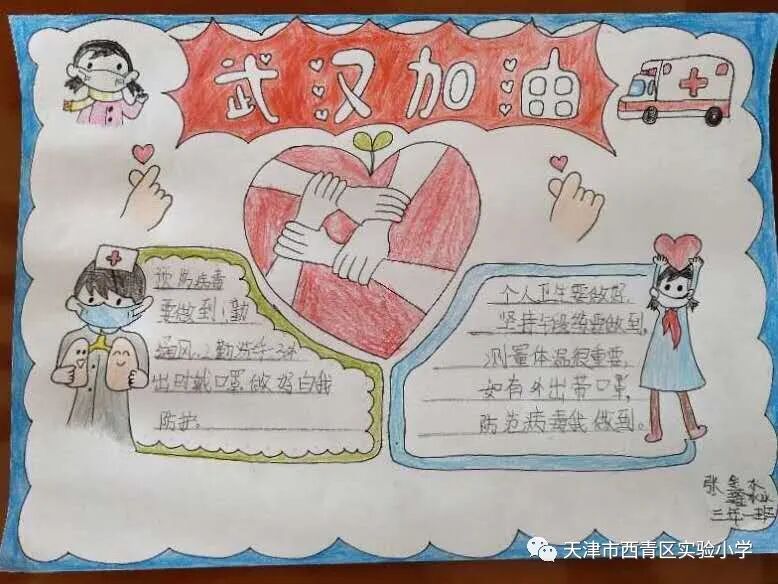 武汉加油
预防病毒
要做到:1勤
通风.2勤洗手.3外
出时戴口罩.做好自我
防护.
个人卫生要做好,
坚持锻练要做到,
测量体温很重要,
如有外出带口罩,
防范病毒我做到。
张鑫淼
三年一班
天津市西青区实验小学